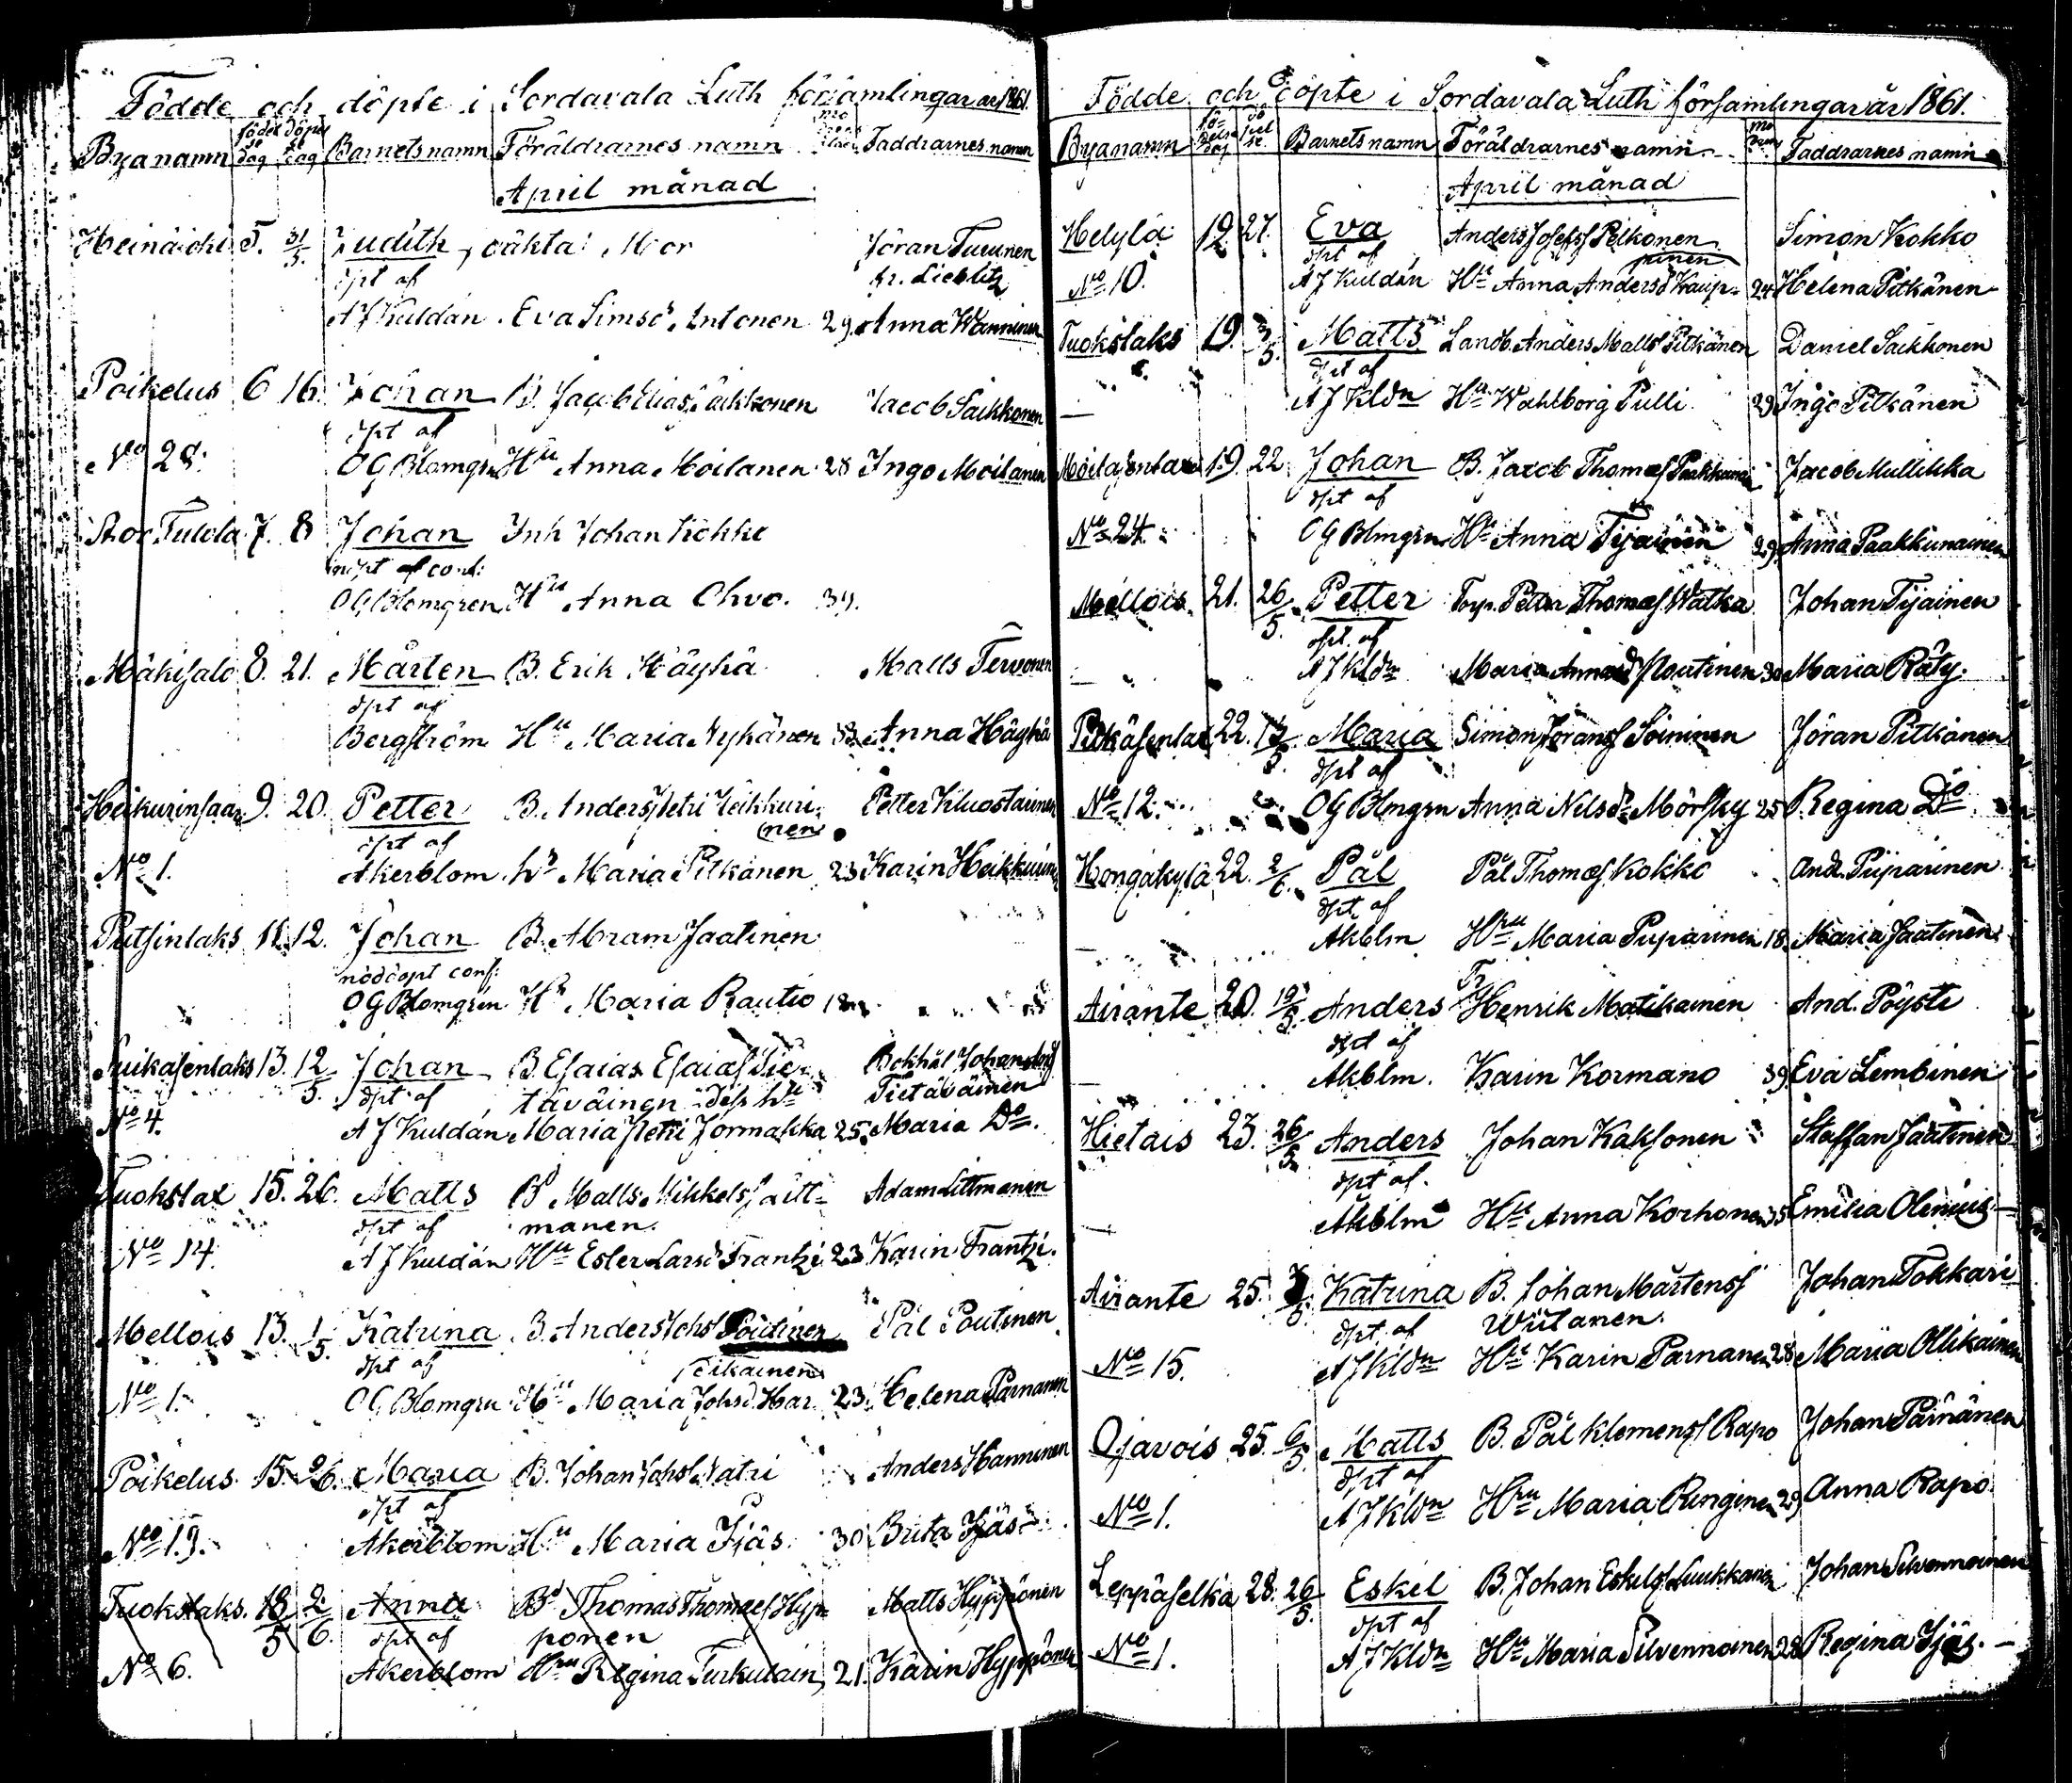 Födde och döpte i Sordavala Luth församlingar år 1861.
Byanamn födelse dag döpelse dag Barnets namn Föräldrarnes namn Faddrarnes namn
April månad
5. 31/5. Judith oäkta Mor Jöran Turunen
dpt af
A J Kuldan Eva Simsd. Intonen 29. Anna Wanninen
Poikelus 6 16. Johan B. Jacob Elias Saikkonen Jacob Saikkonen
dpt af
No 28. O G Blomgrn Hu Anna Moilanen 28 Ingo Moilanen
Stor Tulola 7. 8 Johan Inh Johan Kokko
nödpt af conf:
O G Blomgren Hu Anna Ohvo. 39.
Mäkisalo 8. 21. Mårten B. Erik Häyhä Matts Tervonen
dpt af
Bergström Hu Maria Nyhänen Anna Häyhä
Heikurinsaari 9. 20. Petter B. Anders Petri Heikkuri-
nen
dpt af
No 1. Akerblom. hu Maria Pitkänen 23 Karin Heikkurinen
Putsinlaks 11. 12. Johan B. Abram Jaatinen
nöddpt conf:
O G Blomgren Hu Maria Rautio 18
13. 12/5. Johan B. Esaias Esaiass Tie- Bokhål Johan
dpt af täväinen dess hu Tietäväinen
No 4. A J Kuldan Maria Petri Jormakka 25. Maria Do.
Tuokslax 15. 26. Matts Bd Matts Mikkelss Litt- Adam Littmanen
dpt af manen.
No 14. A J Kuldan Hu Ester Larsd Frantzi 23 Karin Frantzi.
Mellois 13. 1/5. Katrina B. Anders Johss Poutinen Pål Poutinen
dpt af
No 1. O G Blomgrn Hu Maria Johsd. Har 23. Helena Pärnänen
Poikelus 15. 2/6. Maria B. Johan Johss Natri Anders Hanninen
dpt af
No 19. Akerblom Hu Maria Ijäs 30 Brita Ijäs
Tuokslaks. 18/5 2/6. Anna Bd Thomas Thomass Hyp- Matts Hyppönen
dpt af ponen
No 6. Akerblom Hru Regina Turkulain, 21. Karin Hyppönen
Födde och döpte i Sordavala Luth församlingar år 1861.
Byanamn Barnets namn Föräldrarnes namn Faddrarnes namn
April månad
Helylä 19 27. Eva Anders Josefss Pelkonen Simon Kokko
dpt af pinen
No 10. A J Kuldan Hu Anna Andersd Kaup- 24 Helena Pitkänen
Tuokslaks 19. 3/5. Matts Landb. Anders Matts Pitkänen Daniel Saikkonen
dpt af
— A J Kldn Hu Wahlborg Pulli 29 Ingo Pitkänen
19. 22 Johan B. Jacob Thomass Jacob Mullikka
dpt af
No 24. O G Blmgrn Hu Anna Tijainen 29. Anna Paakkunainen
Mellois 21. 26/5. Petter Torp. Petter Thomass Watka Johan Tijainen
dpt af
— A J Kldn Maria Poutinen 30 Maria Räty.
22. Maria Simon Jöranss Soininen Jöran Pitkänen
dpt af
No 12. O G Blmgrn Anna Nilsd. Mörsky 25 Regina Do
Hongakylä 22. 2/6. Pål Pål Thomass Kokko And. Piiparinen
dpt af
— Akblm Hru Maria Piiparinen 18. Maria Jaatinen
Airante 20. 19/5. Anders Tr Henrik Matikainen And. Pöyste
dpt af
— Akblm. Karin Kormano 39 Eva Lembinen
Hietais 23. 26/5. Anders Johan Kaksonen Staffan Jaatinen
dpt af.
— Akblm Hu Anna Korhonen 35 Emilia Olenius
Airante 25. Katrina B. Johan Mårtenss Johan Tokkari
dpt af Wiitanen.
No 15. A J Kldn Hu Karin Parnanen 28 Maria Ollikainen
Ojavois 25. 6/5. Matts B. Pål Klemenss Rapo Johan Pärnänen
dpt af
No 1. A J Kldn Hru Maria Ringinen 29 Anna Rapo
Leppäselkä 28. 26/5. Eskil B. Johan Eskilss Luukkanen Johan Silvennoinen
dpt af
No 1. A J Kldn Hu Maria Silvennoinen 28 Regina Ijäs.